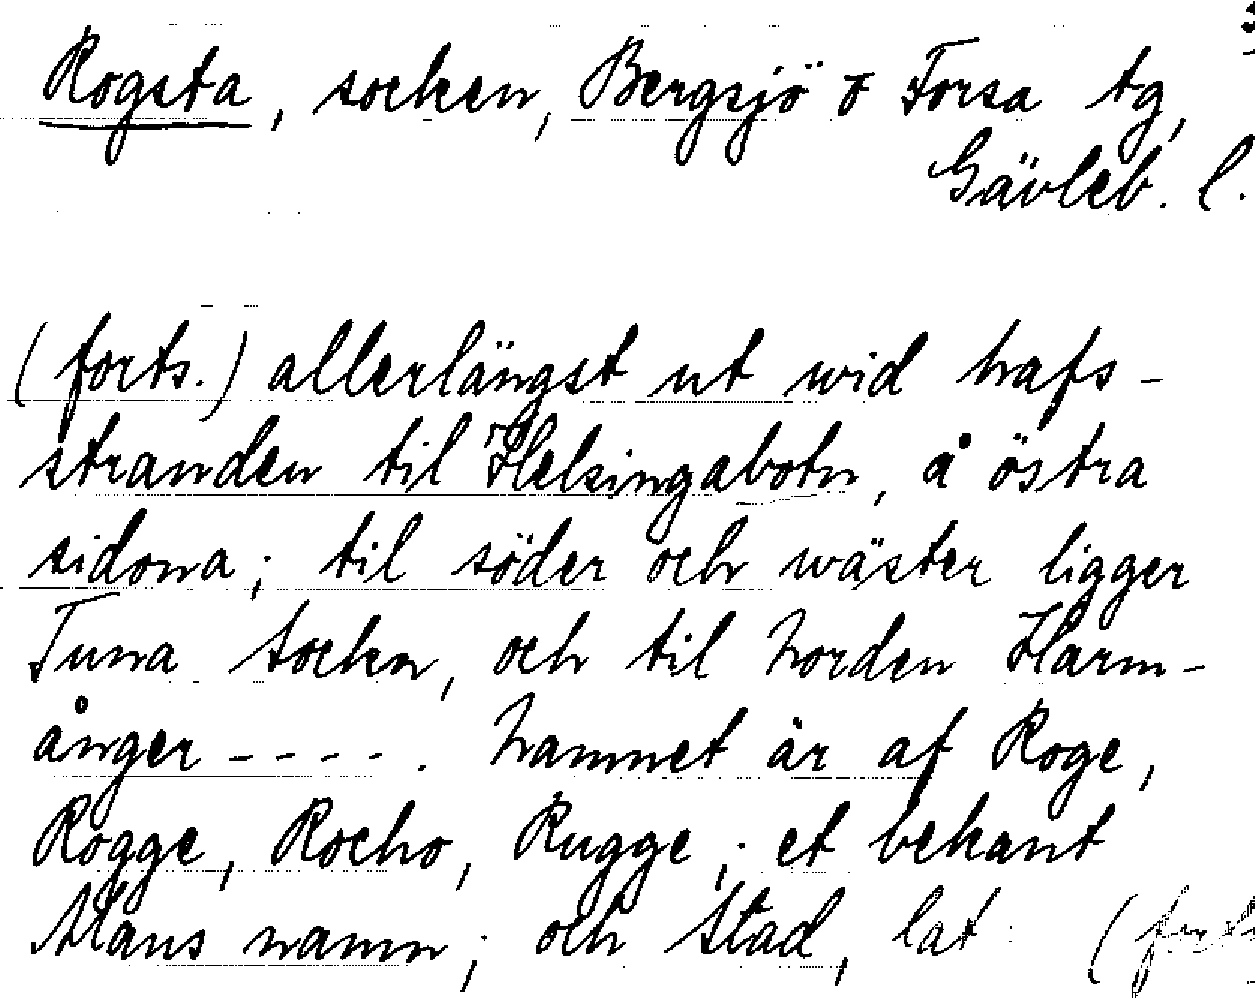 Rogsta, socken, Bergsjö o Forsa tg,
Gävleb. l.
(forts.) allerlängst ut wid hafs-
stranden til Helsingabotn, å östra
sidona; til söder och wäster ligger
Tuna Sockn, och til Norden Harm-
ånger - - - - . Namnet är af Roge,
Rogge, Rocho, Rugge; et bekant
Mans namn; och Stad, lat (forts